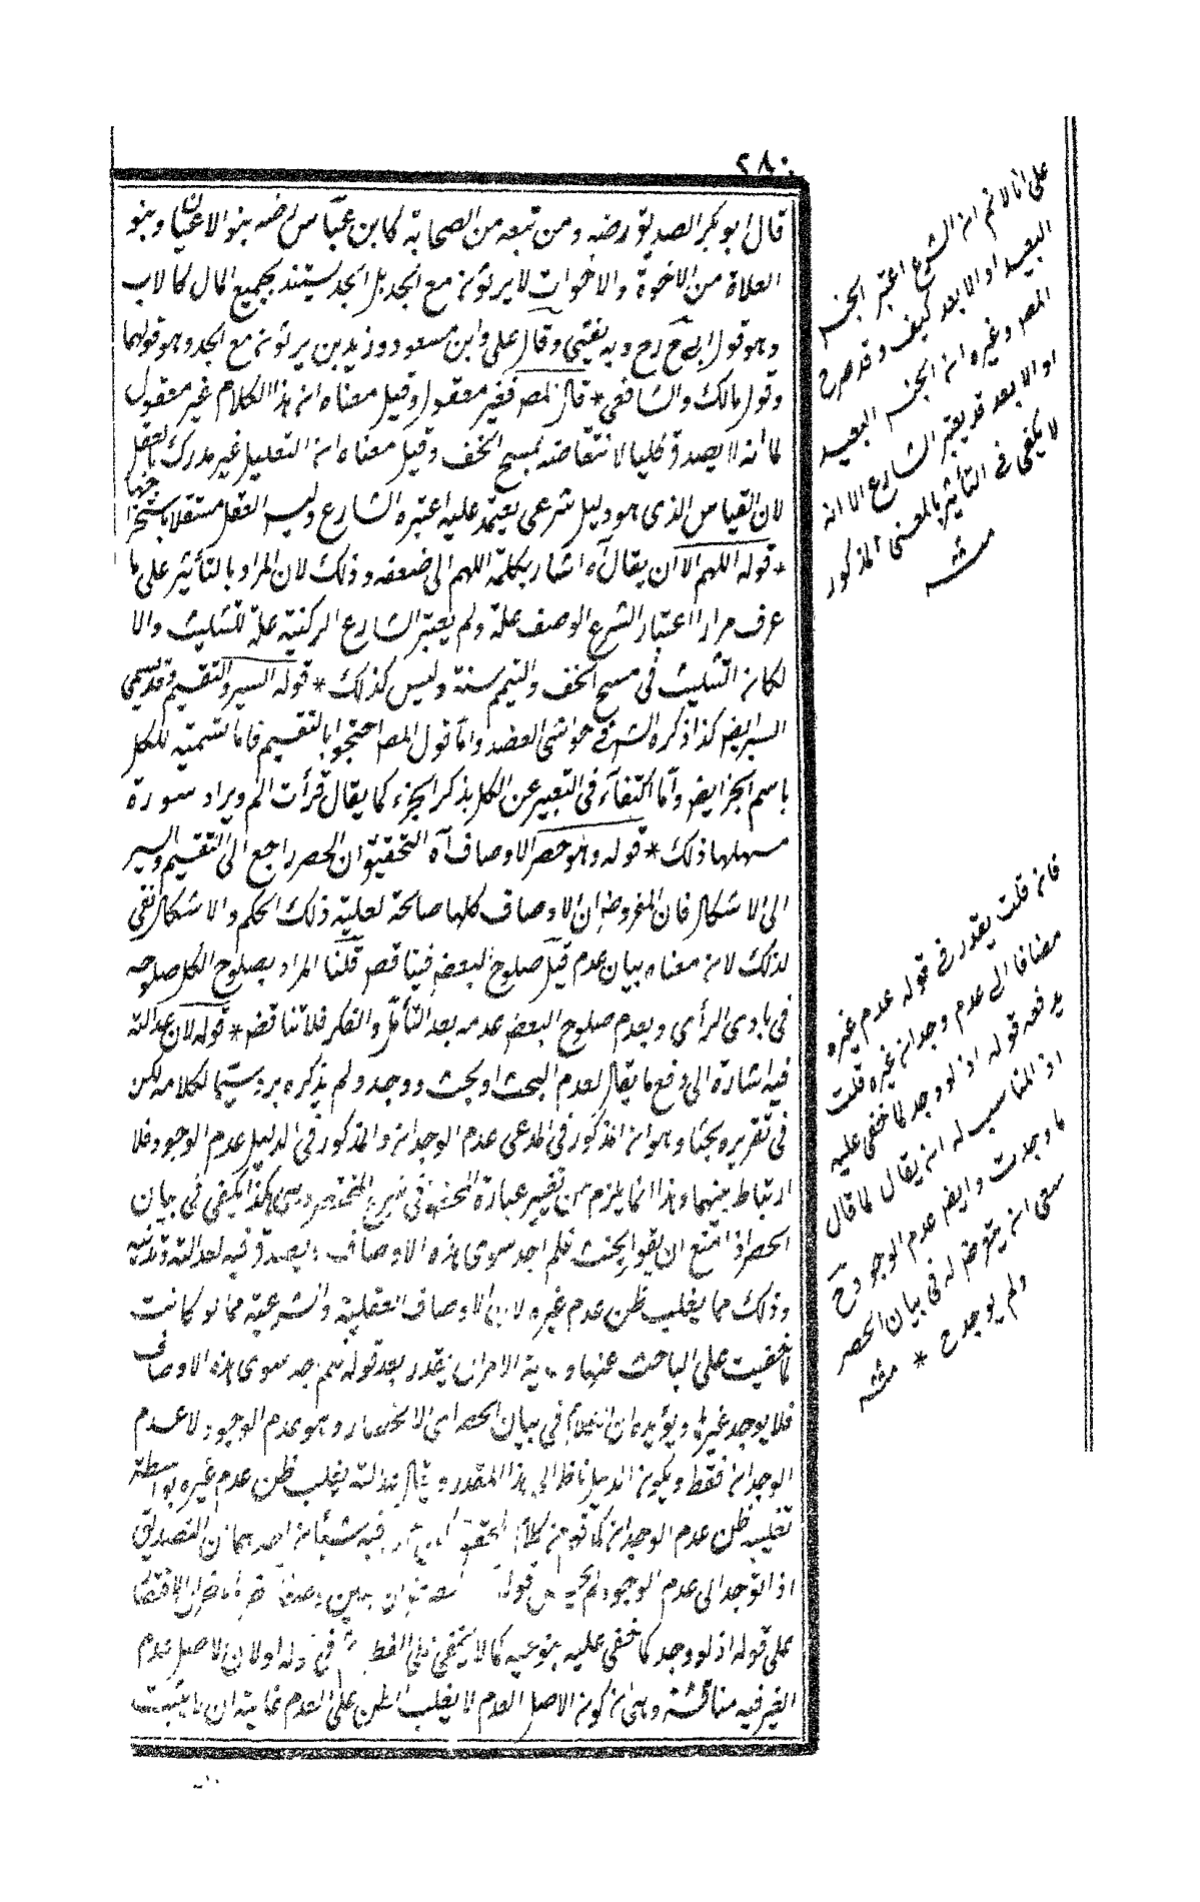 ٢٨٠
قال ابو بكر الصديق رضه ومن تبعه من الصحابة كابن عباس رضه بنو الاعيان وبنو
العلاة من الاخوة والاخوات لا يرثون مع الجد بل الجد يستند بجميع المال كالاب
وهو قول ابى ح رح وبه يفتى وقال على وابن مسعود وزيد بن يرثون مع الجد وهو قولهما
وقول مالك والشافعى * قال المص فغير معقول وقيل معناه ان هذا الكلام غير معقول
لما انه لا يصدق كليا لانتقاضه بمسح الخف وقيل معناه ان التعليل غير مدرك بالعقل
لان القياس الذى هو دليل شرعى يعتمد عليه اعتبره الشارع وليس العقل مستقلا باستخراجها
* قوله اللهم الا ان يقال آه اشار بكلمة اللهم الى ضعفه وذلك لان المراد بالتأثير على ما
عرف مرارا اعتبار الشرع الوصف علة ولم يعتبر الشارع الركنية علة للتثليث والا
لكان التثليث فى مسح الخف والتيمم سنة وليس كذلك * قوله السبر والتقسيم وقد يسمى
السبر ايض كذا ذكره الشريف فى حواشى العضد واما قول المص احتجوا بالتقسيم فاما لتسميته للكل
باسم الجزء ايض واما اكتفاء فى التعبير عن الكل بذكر الجزء كما يقال قرأت الم ويراد سورة
مسهلها ذلك * قوله وهو حصر الاوصاف آه التحقيق ان الحصر راجع الى التقسيم والسبر
الى الاشكال فان المفروض ان الاوصاف كلها صالحة لعلية ذلك الحكم والاشكال نفى
لذلك لان معناه بيان عدم قيل صلوح البعض فيناقض قلنا المراد بصلوح الكل صلوحه
فى بادى الرأى وبعدم صلوح البعض عدمه بعد التأمل والفكر فلا تناقض * قوله لان عدالته
فيه اشارة الى دفع ما يقال لعدم البحث او بحث ووجد ولم يذكره ترويجا لكلامه لكن
فى تقريره بحثا وهو ان المذكور فى المدعى عدم الوجدان والمذكور فى الدليل عدم الوجود فلا
ارتباط بينهما وهذا انما يلزم من تغيير عبارة المحقق فى شرح المختصر وهى هكذا يكفى فى بيان
الحصر اذا منع ان يقول بحثت فلم اجد سوى هذه الاوصاف ويصدق فيه لعدالته وتدينه
وذلك مما يغلب ظن عدم غيره لان الاوصاف العقلية والشرعية مما لو كانت
لما خفيت على الباحث عنها الامران يقدر بعد قوله فلم اجد سوى هذه الاوصاف
فلا يوجد غيرها ويؤيده ان الكلام فى بيان الحصر اى الانحصار وهو عدم الوجود لا عدم
الوجدان فقط ويكون الدليل ناظرا الى هذا المقدر و يغلب ظن عدم غيره بواسطة
تغليب ظن عدم الوجدان كلام المحقق فيه شيئان احدهما ان التصديق
اذا توجه الى عدم الوجود
على قوله اذ لو وجد لما خفى عليه بنوعيه كما لا يخفى على الفطن ثم فى قوله او لان الاصل عدم
الغير فيه مناقشة وهى ان كون الاصل العدم لا يغلب الظن على العدم غايته ان لا يثبت
على انا لا نم ان الشرع اعتبر الجنس
البعيد او الابعد كيف وقد صرح
المص وغيره ان الجنس البعيد
او الابعد قد يعتبر الشارع الا انه
لا يكفى فى التأثير بالمعنى المذكور
منه
فان قلت يقدر فى قوله عدم غيره
مضافا الى عدم وجدان غيره قلت
يدفعه قوله اذ لو وجد لما خفى عليه
اذ المناسب له ان يقال لما قال
ما وجدت وايض عدم الوجود ح
سعى ان يتعرض له فى بيان الحصر
ولم يوجد ح * منه